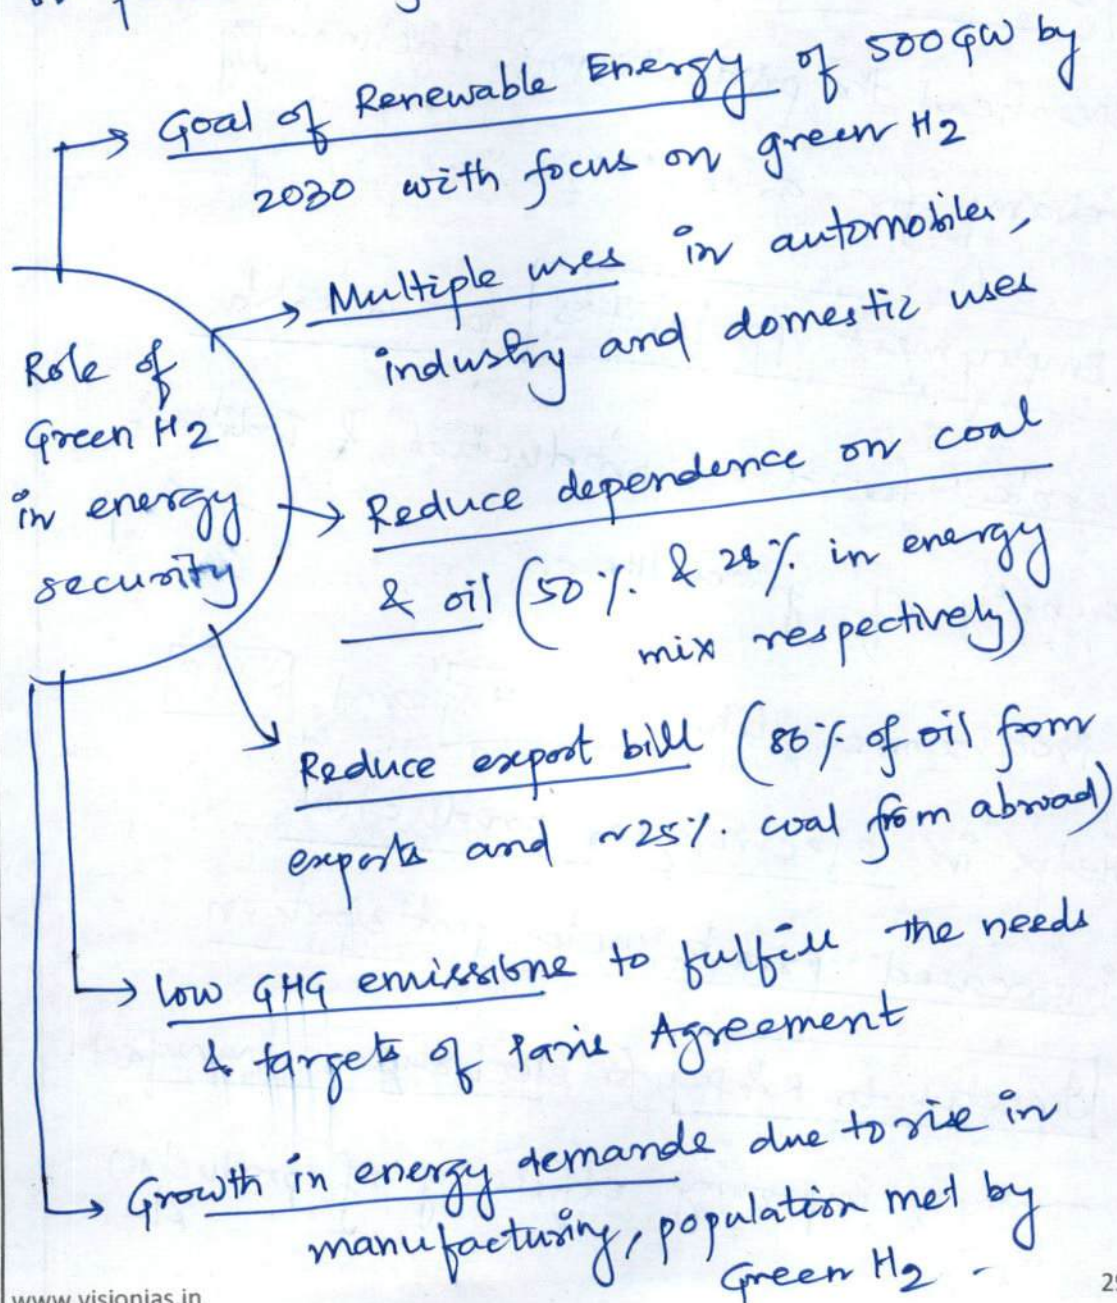 Goal of Renewable Energy of 500 GW by
2030 with focus on green H2
Multiple uses in automobiles,
industry and domestic uses
Role of
Green H2
in energy
security
Reduce dependence on coal
& oil (50% & 28% in energy
mix respectively)
Reduce export bill (86% of oil from
exports and ~25% coal from abroad)
low GHG emissions to fulfill the needs
& targets of Paris Agreement
Growth in energy demands due to rise in
manufacturing, population met by
Green H2 -
www.visionias.in